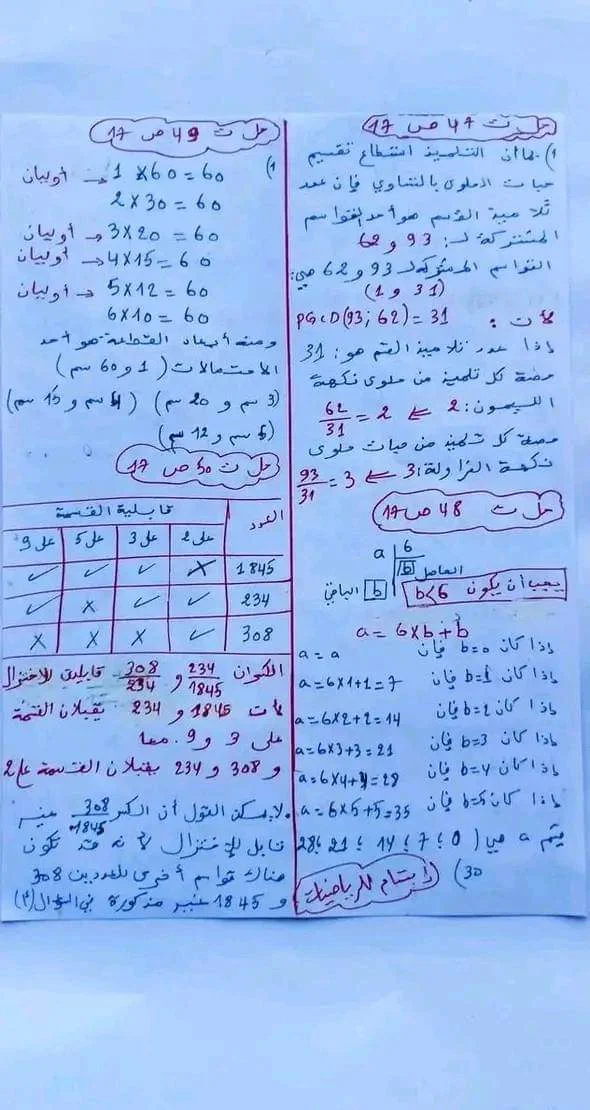 حل ت 47 ص 17
1) بما أن التلميذ استطاع تقسيم
حبات الحلوى بالتساوي فإن عدد
تلاميذ القسم هو أحد القواسم
المشتركة لـ: 93 و 62
القواسم المشتركة لـ 93 و 62 هي:
(31 و 1)
لأن: PGCD(93; 62) = 31
إذا عدد تلاميذ القسم هو: 31
حصة كل تلميذ من حلوى نكهة
الليمون: 2 ← 62/31 = 2
حصة كل تلميذ من حبات حلوى
نكهة الفراولة: 3 ← 93/31 = 3
حل ت 48 ص 17
a | 6
b الحاصل
b الباقي
يجب أن يكون b<6
a = 6×b+b
إذا كان b=0 فإن a = a
إذا كان b=1 فإن a=6×1+1=7
إذا كان b=2 فإن a=6×2+2=14
إذا كان b=3 فإن a=6×3+3=21
إذا كان b=4 فإن a=6×4+4=28
إذا كان b=5 فإن a=6×5+5=35
قيم a هي (0 ؛ 7 ؛ 14 ؛ 21 ؛ 28
30)
ابتسام للرياضيات
حل ت 49 ص 17
1) 1×60=60 → أوليان
2×30=60
3×20=60 → أوليان
4×15=60 → أوليان
5×12=60 → أوليان
6×10=60
ومنه أبعاد القطعة هو أحد
الاحتمالات (1 و 60 سم)
(3 سم و 20 سم) (4 سم و 15 سم)
(5 سم و 12 سم)
حل ت 50 ص 17
العدد قابلية القسمة
على 2 على 3 على 5 على 9
1845 × ✓ ✓ ✓
234 ✓ ✓ × ✓
308 ✓ × × ×
الكسران 234/1845 و 308/234 قابلين للاختزال
لأن 1845 و 234 يقبلان القسمة
على 3 و 9 معا
و 308 و 234 يقبلان القسمة على 2
لا يمكن القول أن الكسر 308/1845 غير
قابل للإختزال لأنه قد تكون
هناك قواسم أخرى للعددين 308
و 1845 غير مذكورة في السؤال (1)